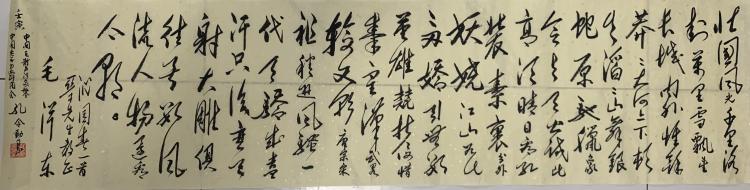 北国风光千里冰
封万里雪飘望
长城内外惟馀
莽莽大河上下顿
失滔滔山舞银
蛇原驰腊象
欲与天公试比
高须晴日看红
装素裹分外
妖娆江山如此
多娇引无数
英雄竞折腰惜
秦皇汉武略
输文彩唐宗宋
祖稍逊风骚一
代天骄成吉
汗只识弯弓
射大雕俱
往矣数风
流人物还看
今朝。
沁园春一首
先生教正
毛泽东
壬寅
中国
中国
孔令